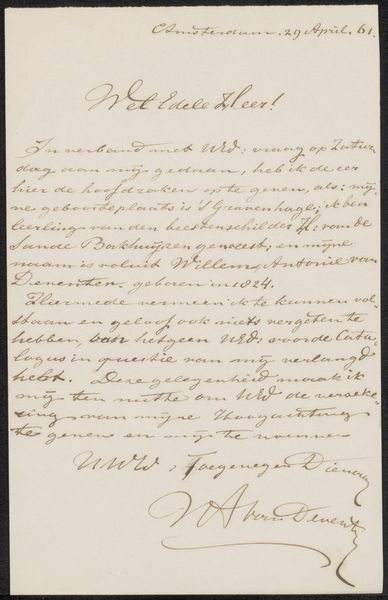 Amsterdam. 29 April. 61.
Wel Edele Heer!
In verband met UEd: vraag op Zatur-
dag aan mij gedaan, heb ik de eer
hier de hoofdzaken op te geven, als: mij-
ne geboorteplaats is 's Gravenhage; ik ben
leerling van den beestenschilder H: van de
Sande Bakhuijzen geweest; en mijne
naam is voluit Willem Antonie van
Deventer. geboren in 1824.
Hiermede vermeen ik te kunnen vol-
staan en geloof ook niets vergeten te
hebben, van hetgeen UEd: voor de Cata-
logus in questie van mij verlangd
hebt. Deze gelegenheid maak ik
mij ten nutte om UEd de verzeke-
ring van mijne Hoogachting
te geven en mij te noemen
UWEd, Toegenegen Dienaar
W A van Deventer